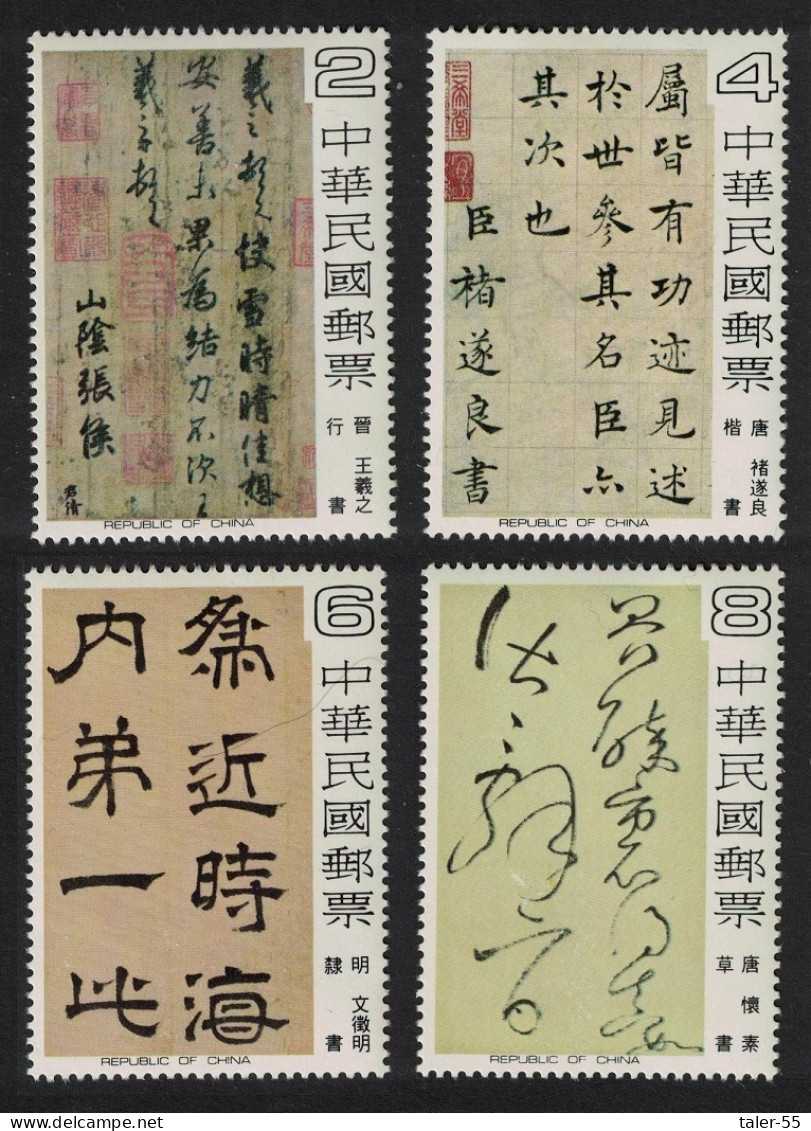 2
中華民國郵票
晉 王羲之
行 書
羲之頓首快雪時晴佳想
安善未果為結力不次王
羲之頓首
山陰張侯
君倩
REPUBLIC OF CHINA
4
中華民國郵票
唐 褚遂良
楷 書
屬皆有功迹見述
於世參其名臣亦
其次也
臣褚遂良書
三希堂
REPUBLIC OF CHINA
6
中華民國郵票
明 文徵明
隸 書
近時海
內弟一此
REPUBLIC OF CHINA
8
中華民國郵票
唐 懷素
草 書
REPUBLIC OF CHINA
taler-55